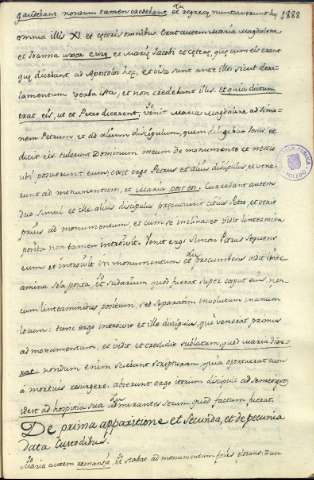 gaudebant nondum tamen credebant et regressae nuntiaverunt haec 1888
omnia illis XI. et ceteris omnibus. Erat autem Maria Magdalene
et Ioanna uxor Cuzę et Maria Iacobi et cęterę, quę cum eis erant
quę dicebant ad Apostolos hęc, et visa sunt ante illos sicut deli-
ramentum verba ista, et non credebant illis.
erat eis, ut et Petro dicerent, venit Maria Magdalene ad Simo-
nem Petrum, et ad alium discipulum, quem diligebat Iesus, et
dicit eis: tulerunt Dominum meum de monumento et nescio
ubi posuerunt eum, exiit ergo Petrus et alius discipulus et vene-
runt ad monumentum, et Maria Currebant autem
duo simul et ille alius discipulus pręcucurrit citius Petro, et venit
prius ad monumentum, et cum se inclinasset vidit linteamina
posita non tamen introivit. Venit ergo Simon Petrus sequens
eum et introivit in monumentum et procumbens vidit linte
amina sola posita, et sudarium quod fuerat super caput eius non
cum linteaminibus positum, sed separatim involutum in unum
locum: tunc ergo introivit et ille discipulus, qui venerat primus
ad monumentum, et vidit et credidit sublatum, quod Maria dixe-
rat nondum enim sciebant scripturam, quia oportuerat eum
à mortuis resurgere, abierunt ergo iterum discipuli ad semetipsos
admirantes secum quod factum fuerat.
De prima apparitione et secunda, et de pecunia
data custodibus.
Maria autem remansit, et stabat ad monumentum foris plorans dum